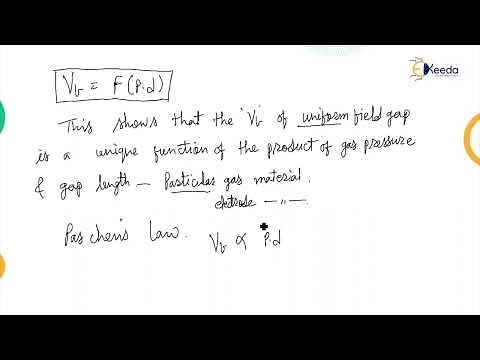 EKeeda
V_b = F(P.d)
This shows that the 'V_b' of uniform field gap
is a unique function of the product of gas pressure
& gap length — Particular gas material.
electrode — " —
Paschen's Law. V_b ∝ P.d